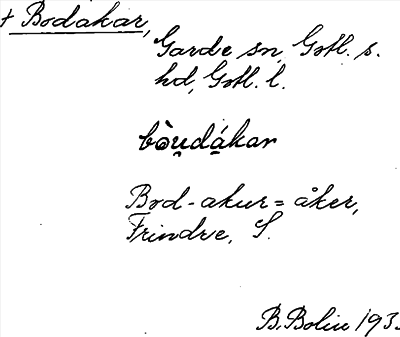 + Bodakar,
Garde sn, Gotl. s.
hd, Gotl. l.
bòu̯dá̱kar
Bod-akur = åker,
Frindre, S.
B. Bolin 193